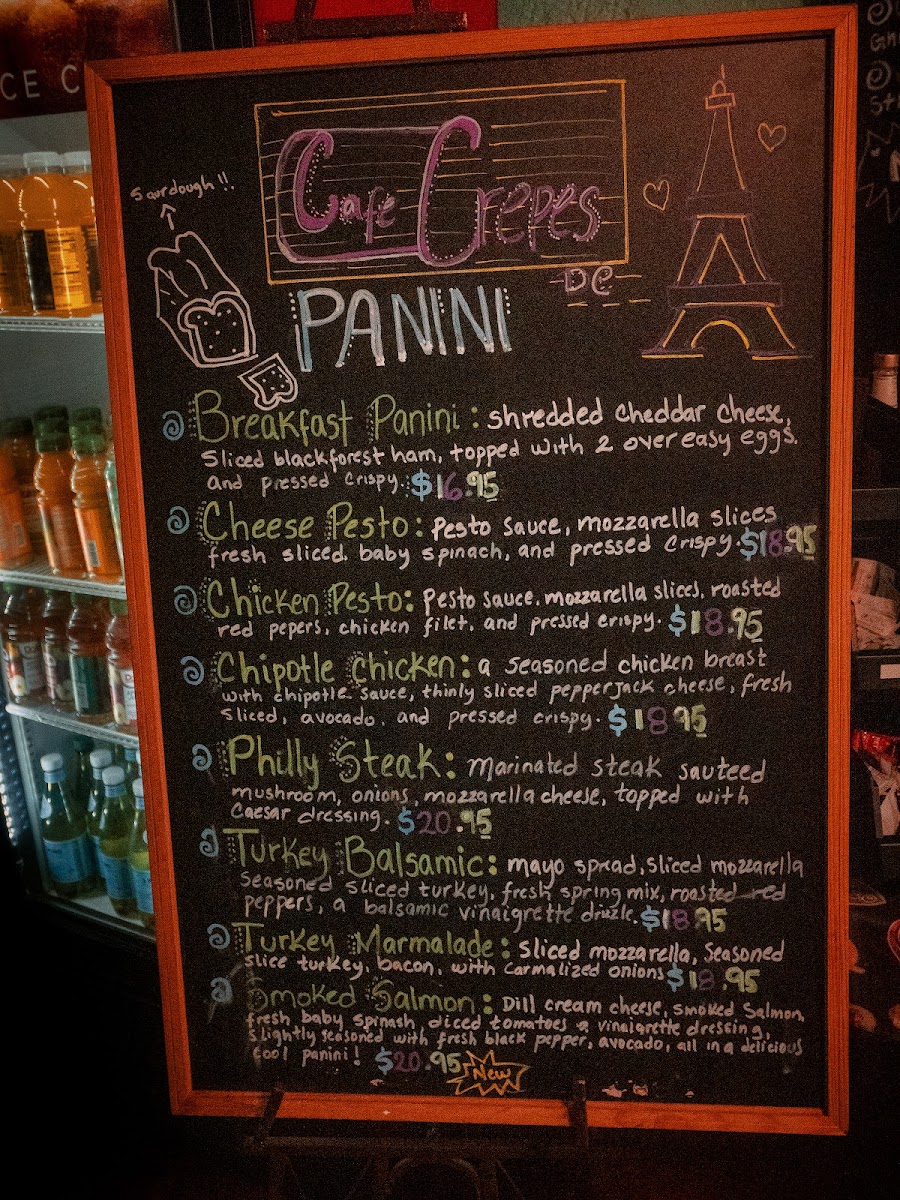 CE C
Sourdough!!
Cafe Crepes
De
PANINI
Breakfast Panini: shredded cheddar cheese,
Sliced blackforest ham, topped with 2 over easy eggs.
and pressed crispy. $16.95
Cheese Pesto: Pesto sauce, mozzarella slices
fresh sliced. baby spinach, and pressed crispy. $18.95
Chicken Pesto: Pesto sauce. mozzarella slices, roasted
red pepers, chicken filet, and pressed crispy. $18.95
Chipotle Chicken: a seasoned chicken breast
with chipotle sauce, thinly sliced pepperjack cheese, fresh
sliced, avocado. and pressed crispy. $18.95
Philly Steak: Marinated steak sauteed
mushroom, onions, mozzarella cheese, topped with
Caesar dressing. $20.95
Turkey Balsamic: mayo spread, sliced mozzarella
seasoned sliced turkey, fresh spring mix, roasted red
peppers, a balsamic vinaigrette drizzle. $18.95
Turkey Marmalade: Sliced mozzarella, Seasoned
slice turkey, bacon, with carmalized onions $18.95
Smoked Salmon: Dill cream cheese, smoked Salmon,
fresh baby spinash, diced tomatoes a vinaigrette dressing,
slightly seasoned with fresh black pepper, avocado, all in a delicious
cool panini! $20.95 New